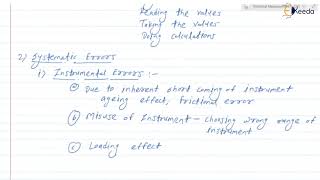 Reading the values
Taking the values
Doing calculations
Keeda
2) Systematic Errors
i) Instrumental Errors :-
(a) Due to inherent short coming of instrument
ageing effect, frictional error
(b) Misuse of Instrument - choosing wrong range of
instrument
(c) Loading effect